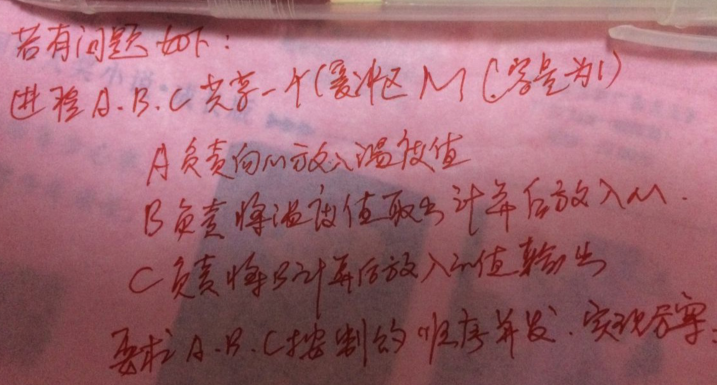 若有问题如下：
进程A.B.C共享一个缓冲区M（容量为1）
A负责向M放入温度值
B负责将温度值取出计算后放入M.
C负责将B计算后放入的值输出
要求A.B.C按制约顺序并发.实现方案.